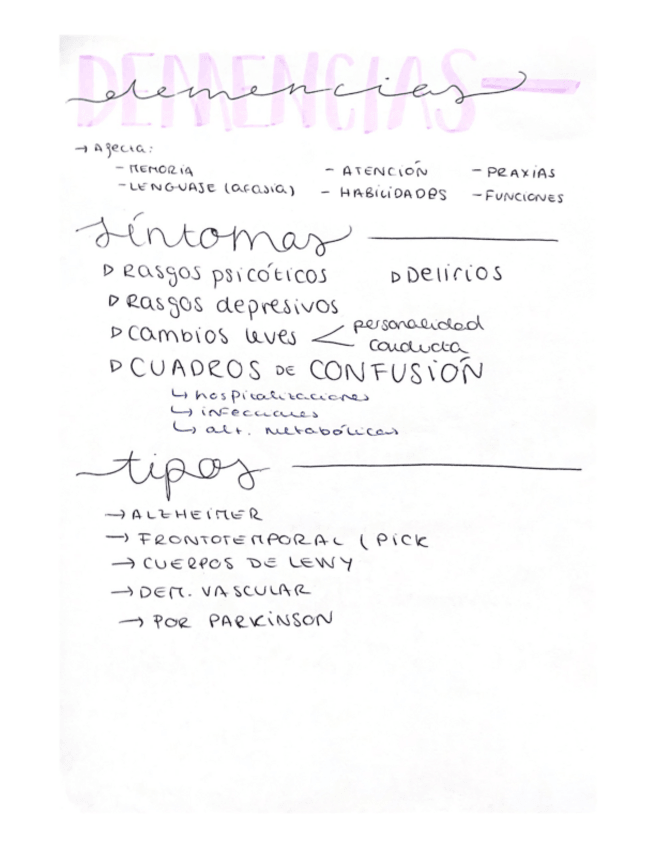 DEMENCIAS
demencias
→ Afecta:
- MEMORIA - ATENCIÓN - PRAXIAS
- LENGUAJE (afasia) - HABILIDADES - FUNCIONES
síntomas
▷ Rasgos psicóticos ▷ Delirios
▷ Rasgos depresivos
▷ cambios leves < personalidad
conducta
▷ CUADROS DE CONFUSIÓN
↳ hospitalizaciones
↳ infecciones
↳ alt. metabólicas
tipos
→ ALZHEIMER
→ FRONTOTEMPORAL ( PICK
→ CUERPOS DE LEWY
→ DEM. VASCULAR
→ POR PARKINSON